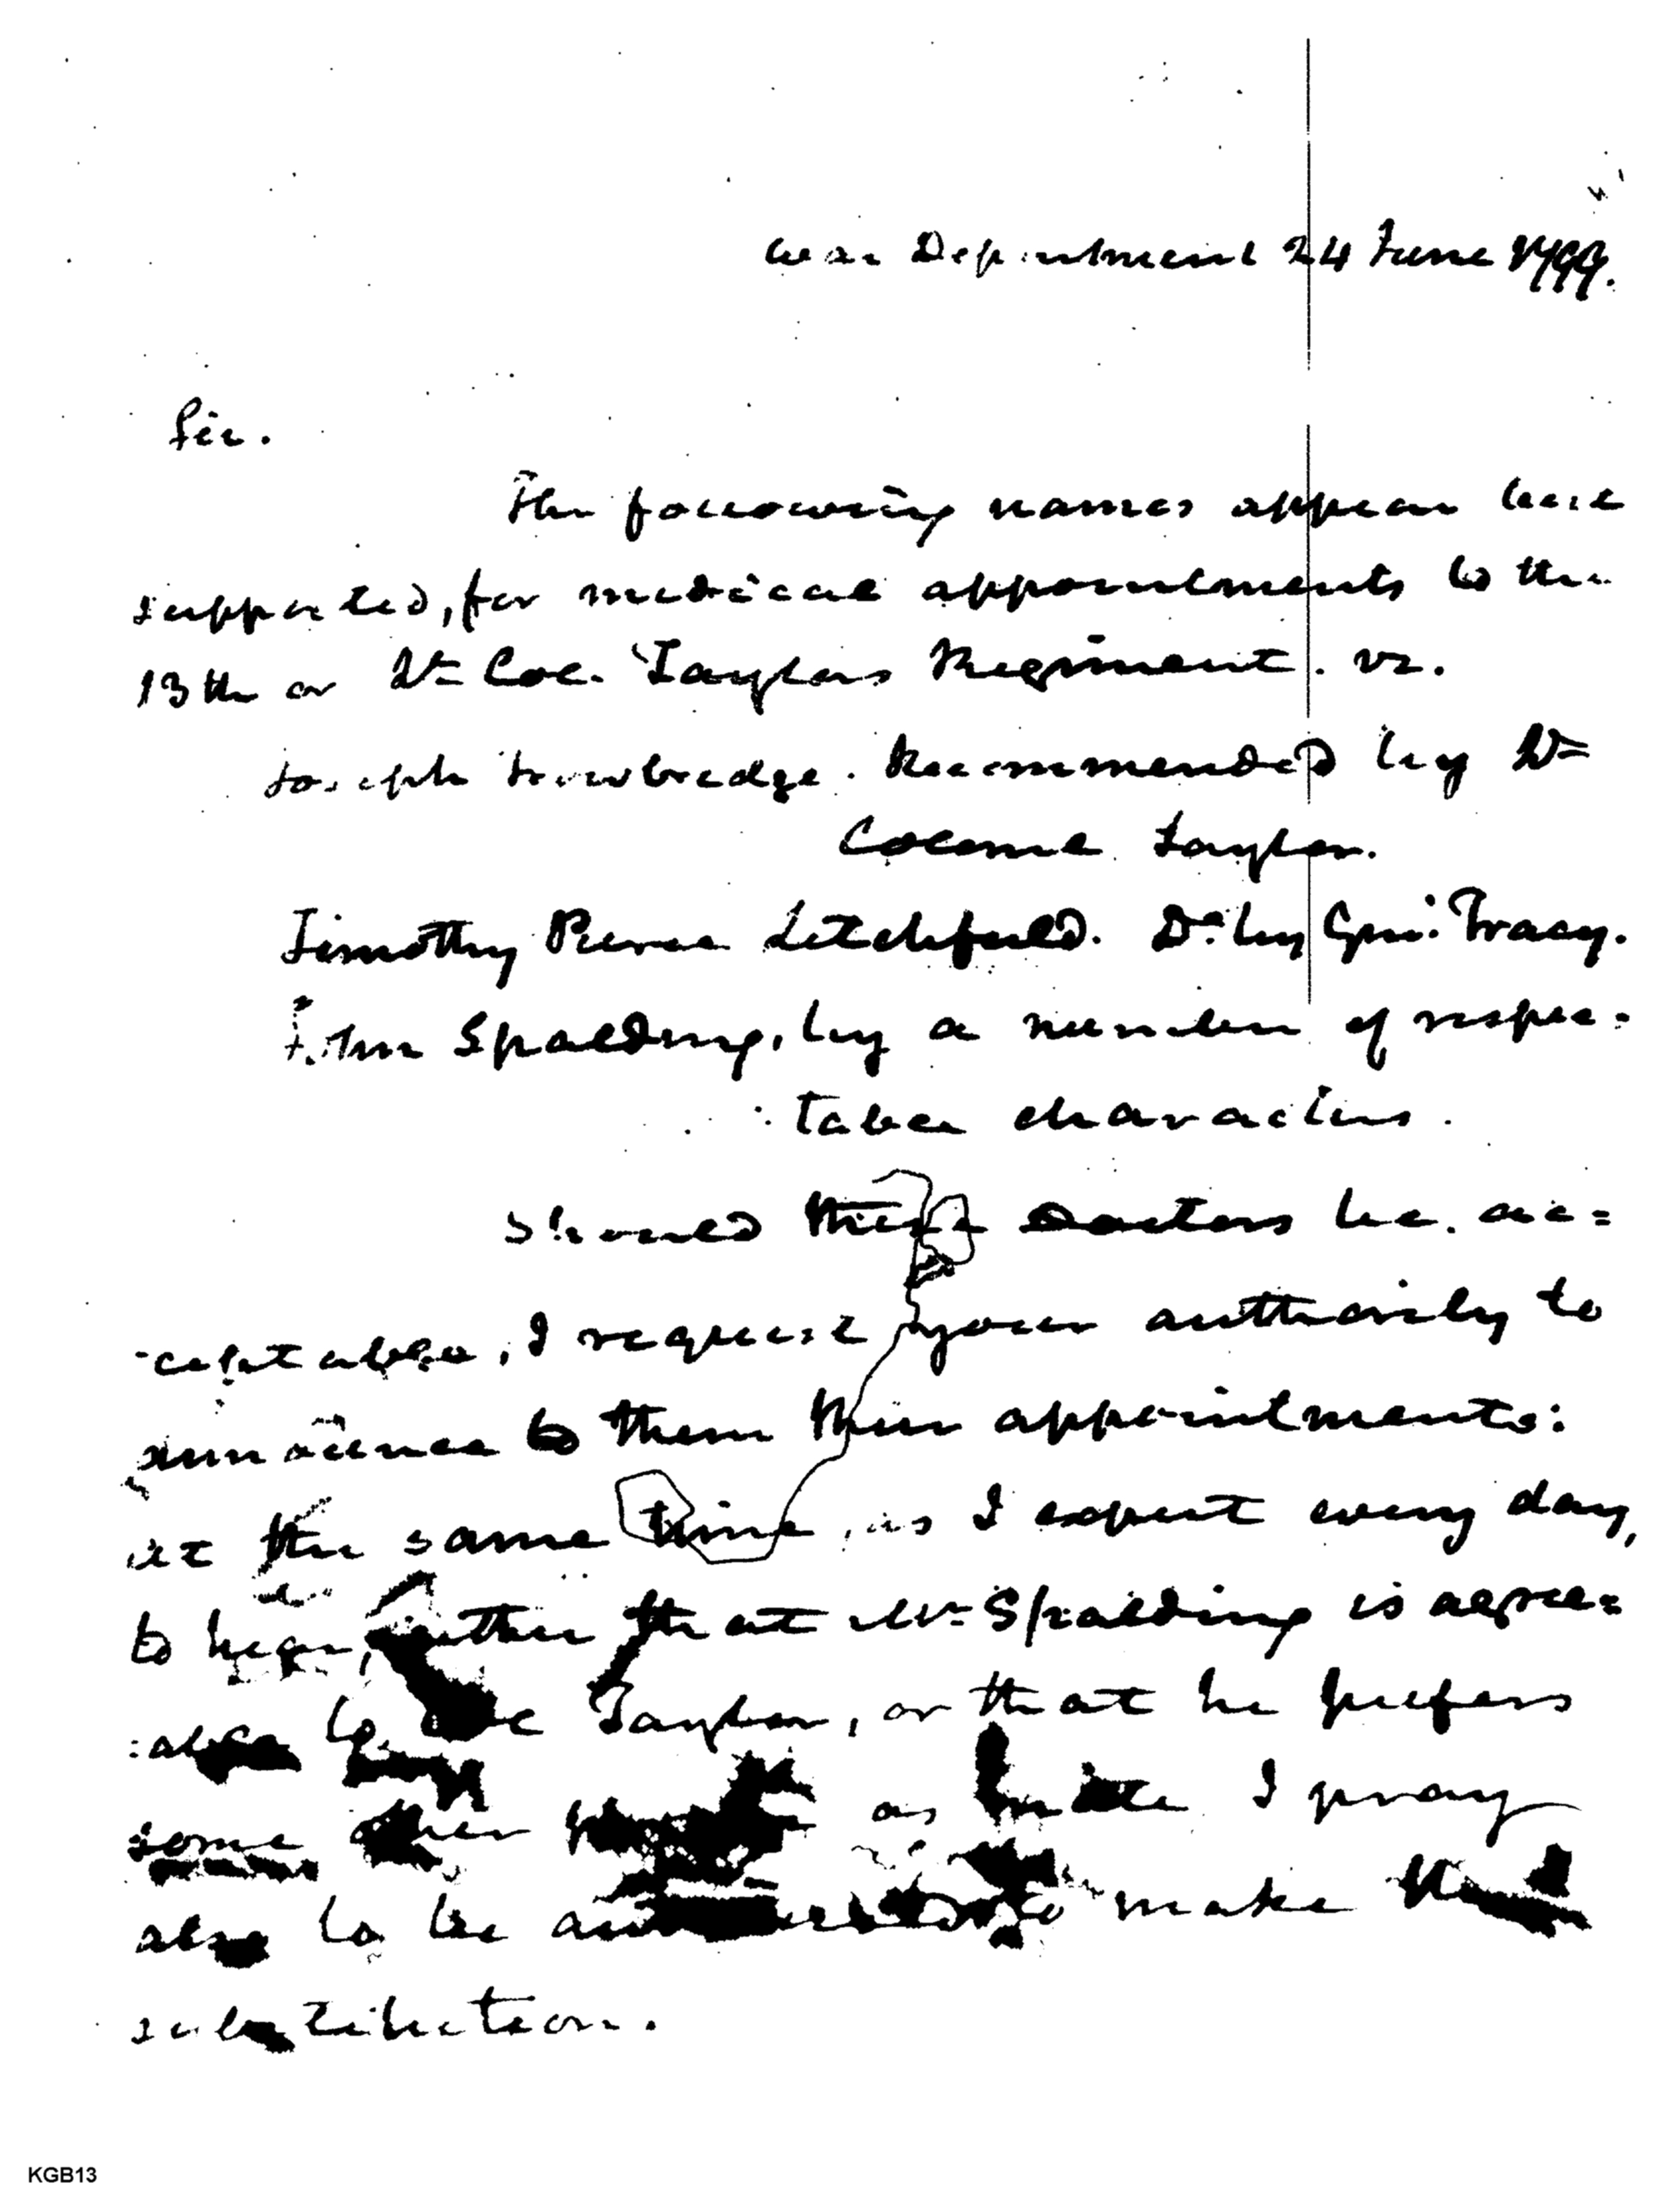 War Department 24 June 1799.
Sir.
The following names appear best
supported, for medical appointments to the
13th or Lt Col. Taylors Regiment. vz.
Joseph Trowbridge. Recommended by Lt
Colonel Taylor.
Timothy Pierce Litchfield. Do. by Genl. Tracy.
John Spalding, by a number of respec=
:table characters.
Should these Doctors be ac=
-ceptable, I request your authority to
announce to them their appointments:
at the same time, as I expect every day,
to hear, either that Mr Spalding is agree=
:able to Col Taylor, or that he prefers
some other as mate I pray
also to be to make the
substitution.
KGB13